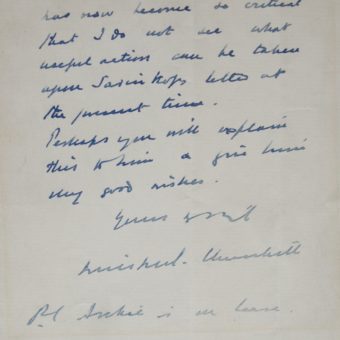 has now become so critical
that I do not see what
useful action can be taken
upon Savinkoff's letter at
the present time.
Perhaps you will explain
this to him & give him
my good wishes.
Yours
Winston S. Churchill
P.S. Archie is on leave.